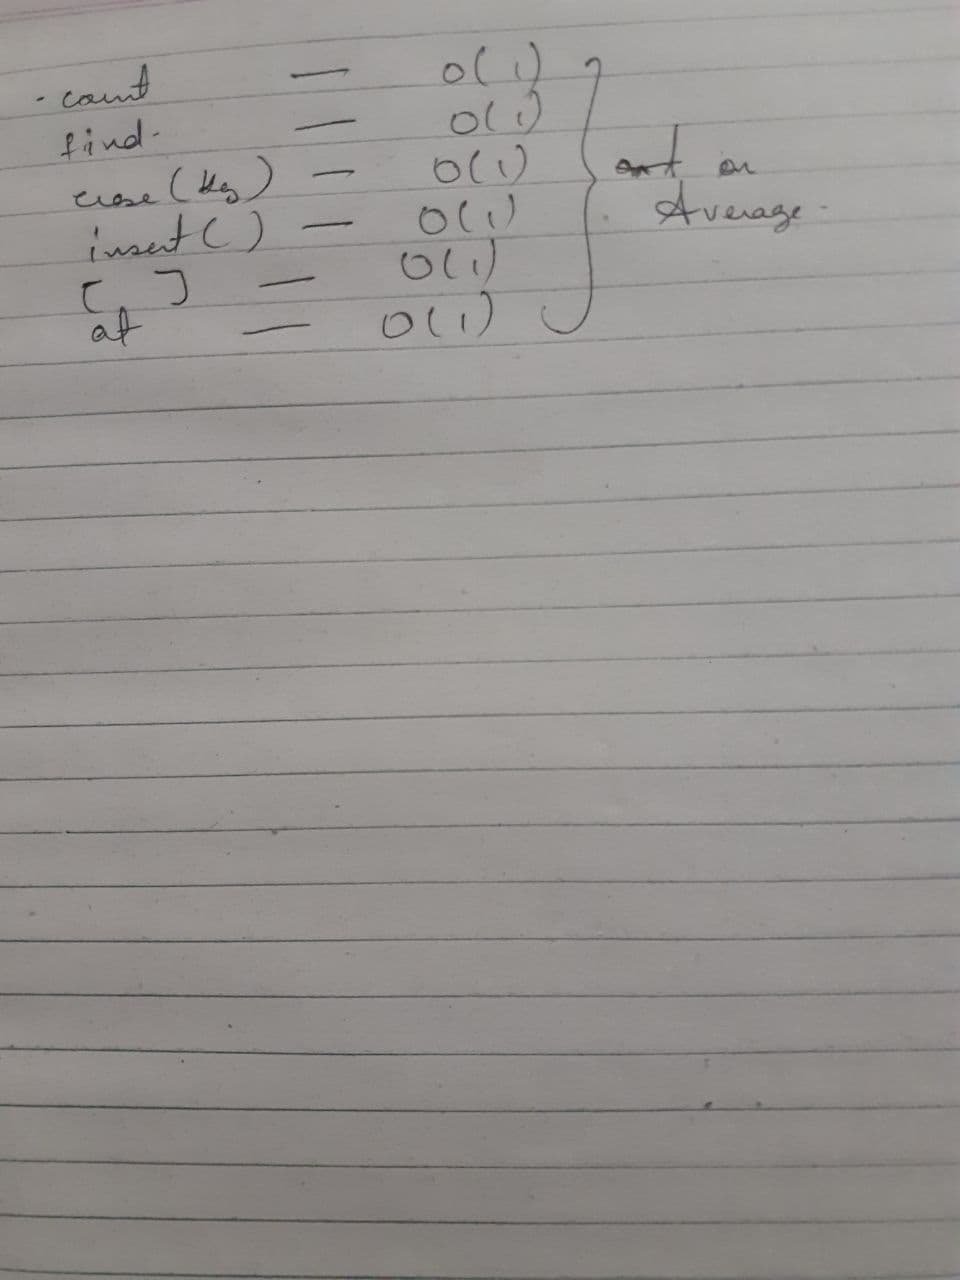 . count — O(1)
find. — O(1)
erase(key) — O(1)
insert() — O(1)
[ ] — O(1)
at — O(1)
on
Average.